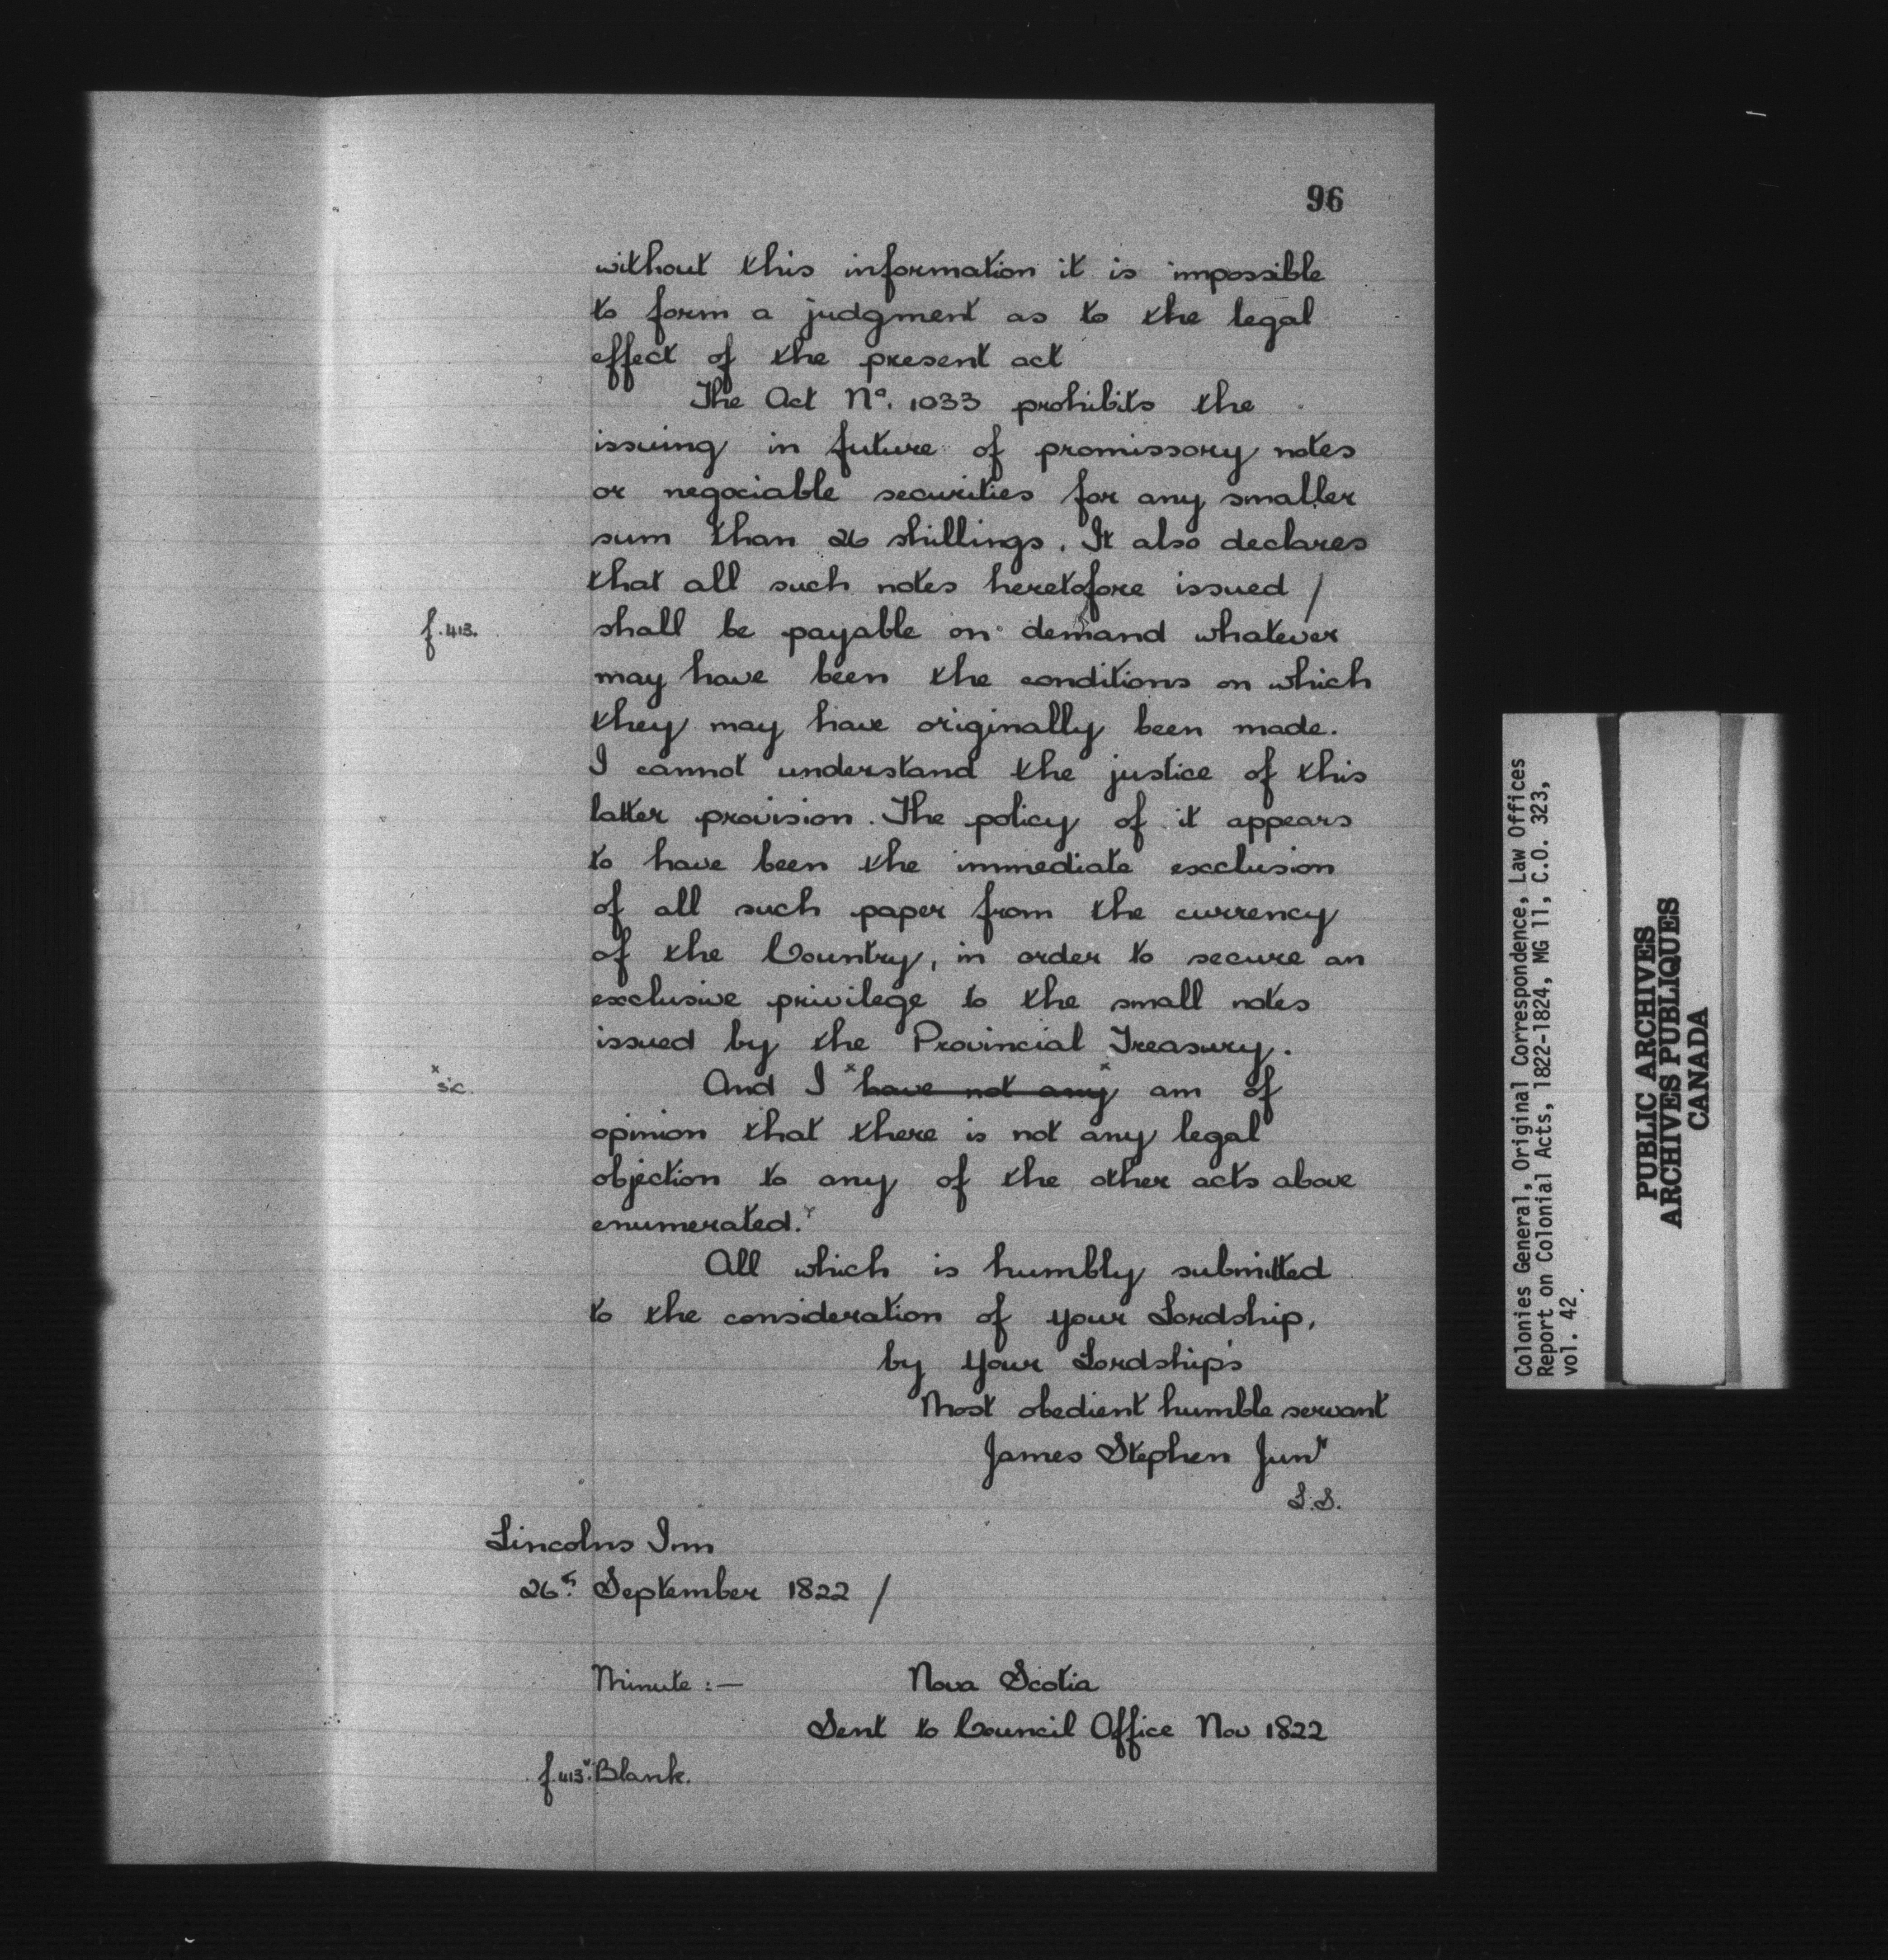 96
without this information it is impossible
to form a judgment as to the legal
effect of the present act
The Act No. 1033 prohibits the
issuing in future of promissory notes
or negociable securities for any smaller
sum than 26 shillings. It also declares
that all such notes heretofore issued /
f.413. shall be payable on demand whatever
may have been the conditions on which
they may have originally been made.
I cannot understand the justice of this
latter provision. The policy of it appears
to have been the immediate exclusion
of all such paper from the currency
of the Country, in order to secure an
exclusive privilege to the small notes
issued by the Provincial Treasury.
x sic. And I x have not any x am of
opinion that there is not any legal
objection to any of the other acts above
enumerated.
All which is humbly submitted
to the consideration of your Lordship,
by Your Lordship's
Most obedient humble servant
James Stephen Junr
L.S.
Lincolns Inn
26th September 1822 /
Minute :— Nova Scotia
Sent to Council Office Nov 1822
f.413v. Blank.
Colonies General, Original Correspondence, Law Offices
Report on Colonial Acts, 1822-1824, MG 11, C.O. 323,
vol. 42.
PUBLIC ARCHIVES
ARCHIVES PUBLIQUES
CANADA